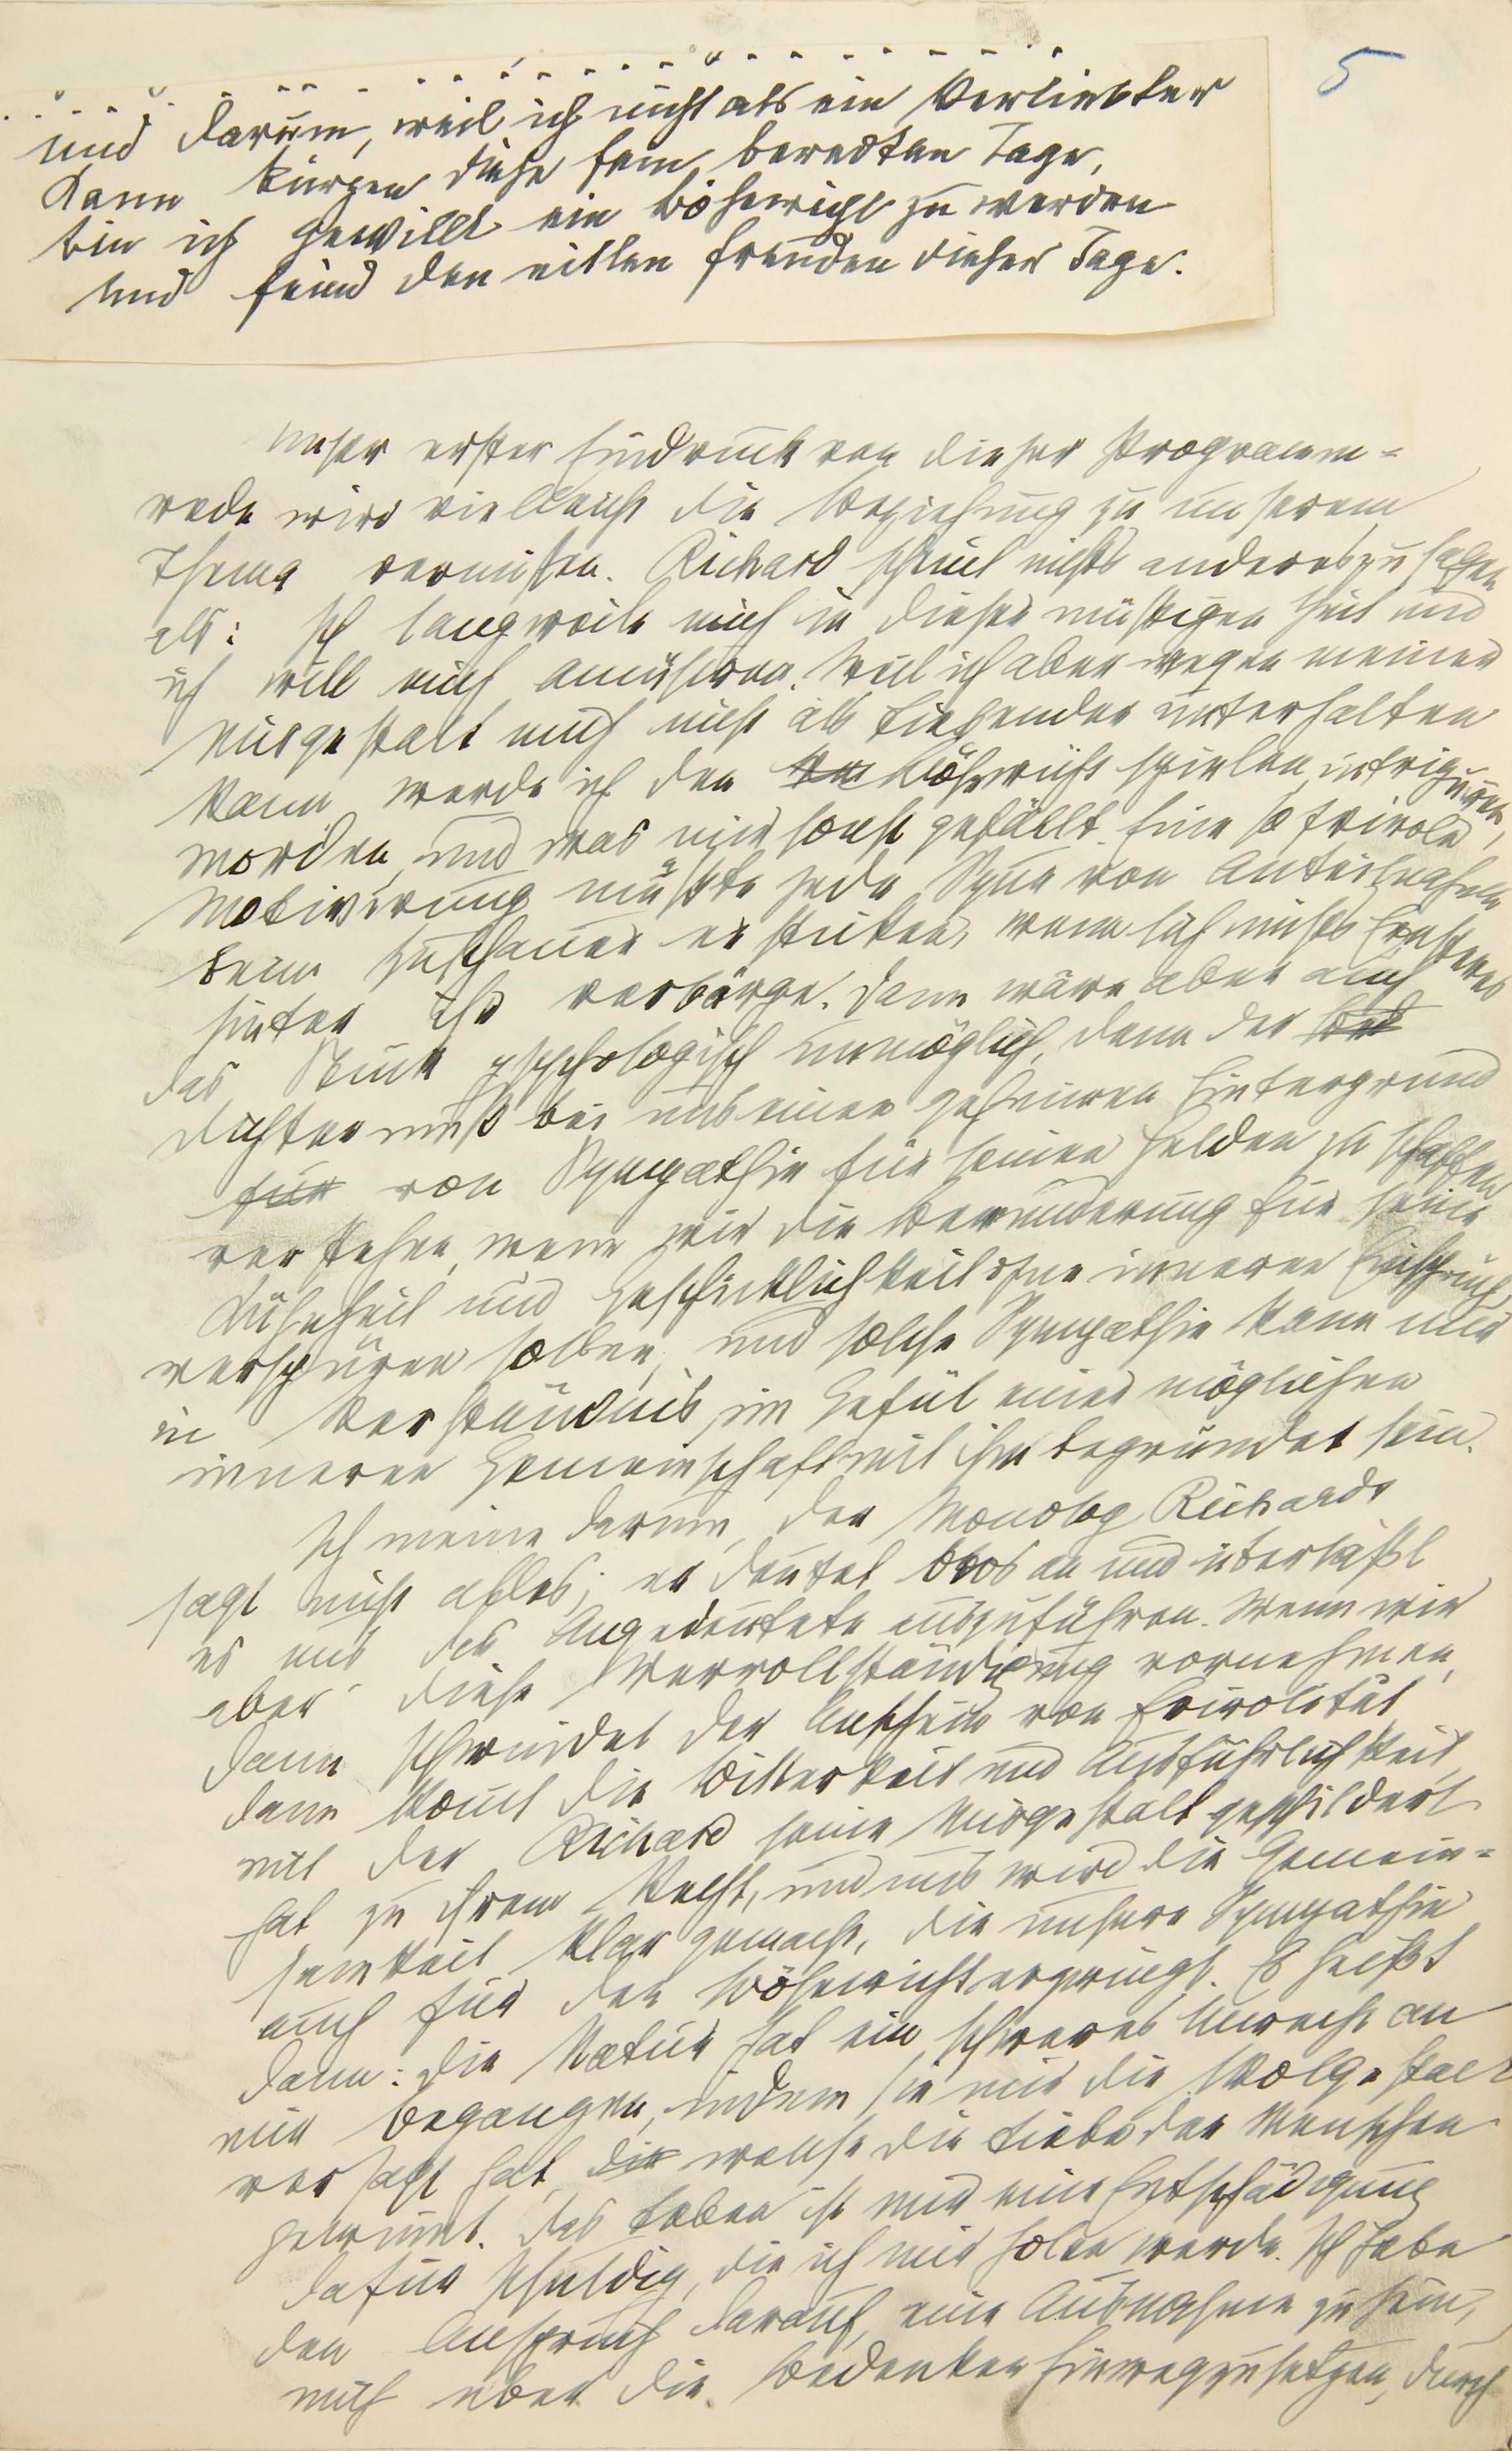 5
und darum, weil ich nicht als ein Verliebter
kann kürzen diese fein beredten Tage,
bin ich gewillt ein Bösewicht zu werden
und feind den eitlen Freuden dieser Tage.
Unser erster Eindruck von dieser Programm=
rede wird vielleicht die Beziehung zu unserem
Thema vermissen. Richard scheint nichts anderes zu sagen
als: Ich langweile mich in dieser müssigen Zeit und
ich will mich amüsiren. Weil ich aber wegen meiner
Misgestalt mich nicht als Liebender unterhalten
kann, werde ich den Bösewicht spielen, intriguiren,
morden, und was mir sonst gefällt. Eine so frivole
Motivirung müßte jede Spur von Anteilnahme
beim Zuschauer ersticken, wenn sich nichts Ernsteres
hinter ihr verbärge. Dann wäre aber auch
das Stück psychologisch unmöglich, denn der
Dichter muß bei uns einen geheimen Hintergrund
für von Sympathie für seinen Helden zu schaffen
verstehen, wenn wir die Bewunderung für seine
Kühnheit und Geschicklichkeit ohne inneren Einspruch
verspüren sollen, und solche Sympathie kann nur
im Verständnis, im Gefül einer möglichen
inneren Gemeinschaft mit ihm begründet sein.
Ich meine darum, der Monolog Richards
sagt nicht alles; er deutet blos an und überläßt
es uns das Angedeutete auszuführen. Wenn wir
aber diese Vervollständigung vornehmen,
dann schwindet der Anschein von Frivolität
dann kommt die Bitterkeit und Ausführlichkeit,
mit der Richard seine Misgestalt geschildert
hat zu ihrem Recht, und uns wird die Gemein=
samkeit klar gemacht, die unsere Sympathie
auch für den Bösewicht erzwingt. Es heißt
dann: Die Natur hat ein schweres Unrecht an
mir begangen, indem sie mir die Wolgestalt
versagt hat, die welche die Liebe der Menschen
gewinnt. Das Leben ist mir eine Entschädigung
dafür schuldig, die ich mir holen werde. Ich habe
den Anspruch darauf, eine Ausnahme zu sein,
mich über die Bedenken hinwegzusetzen, durch